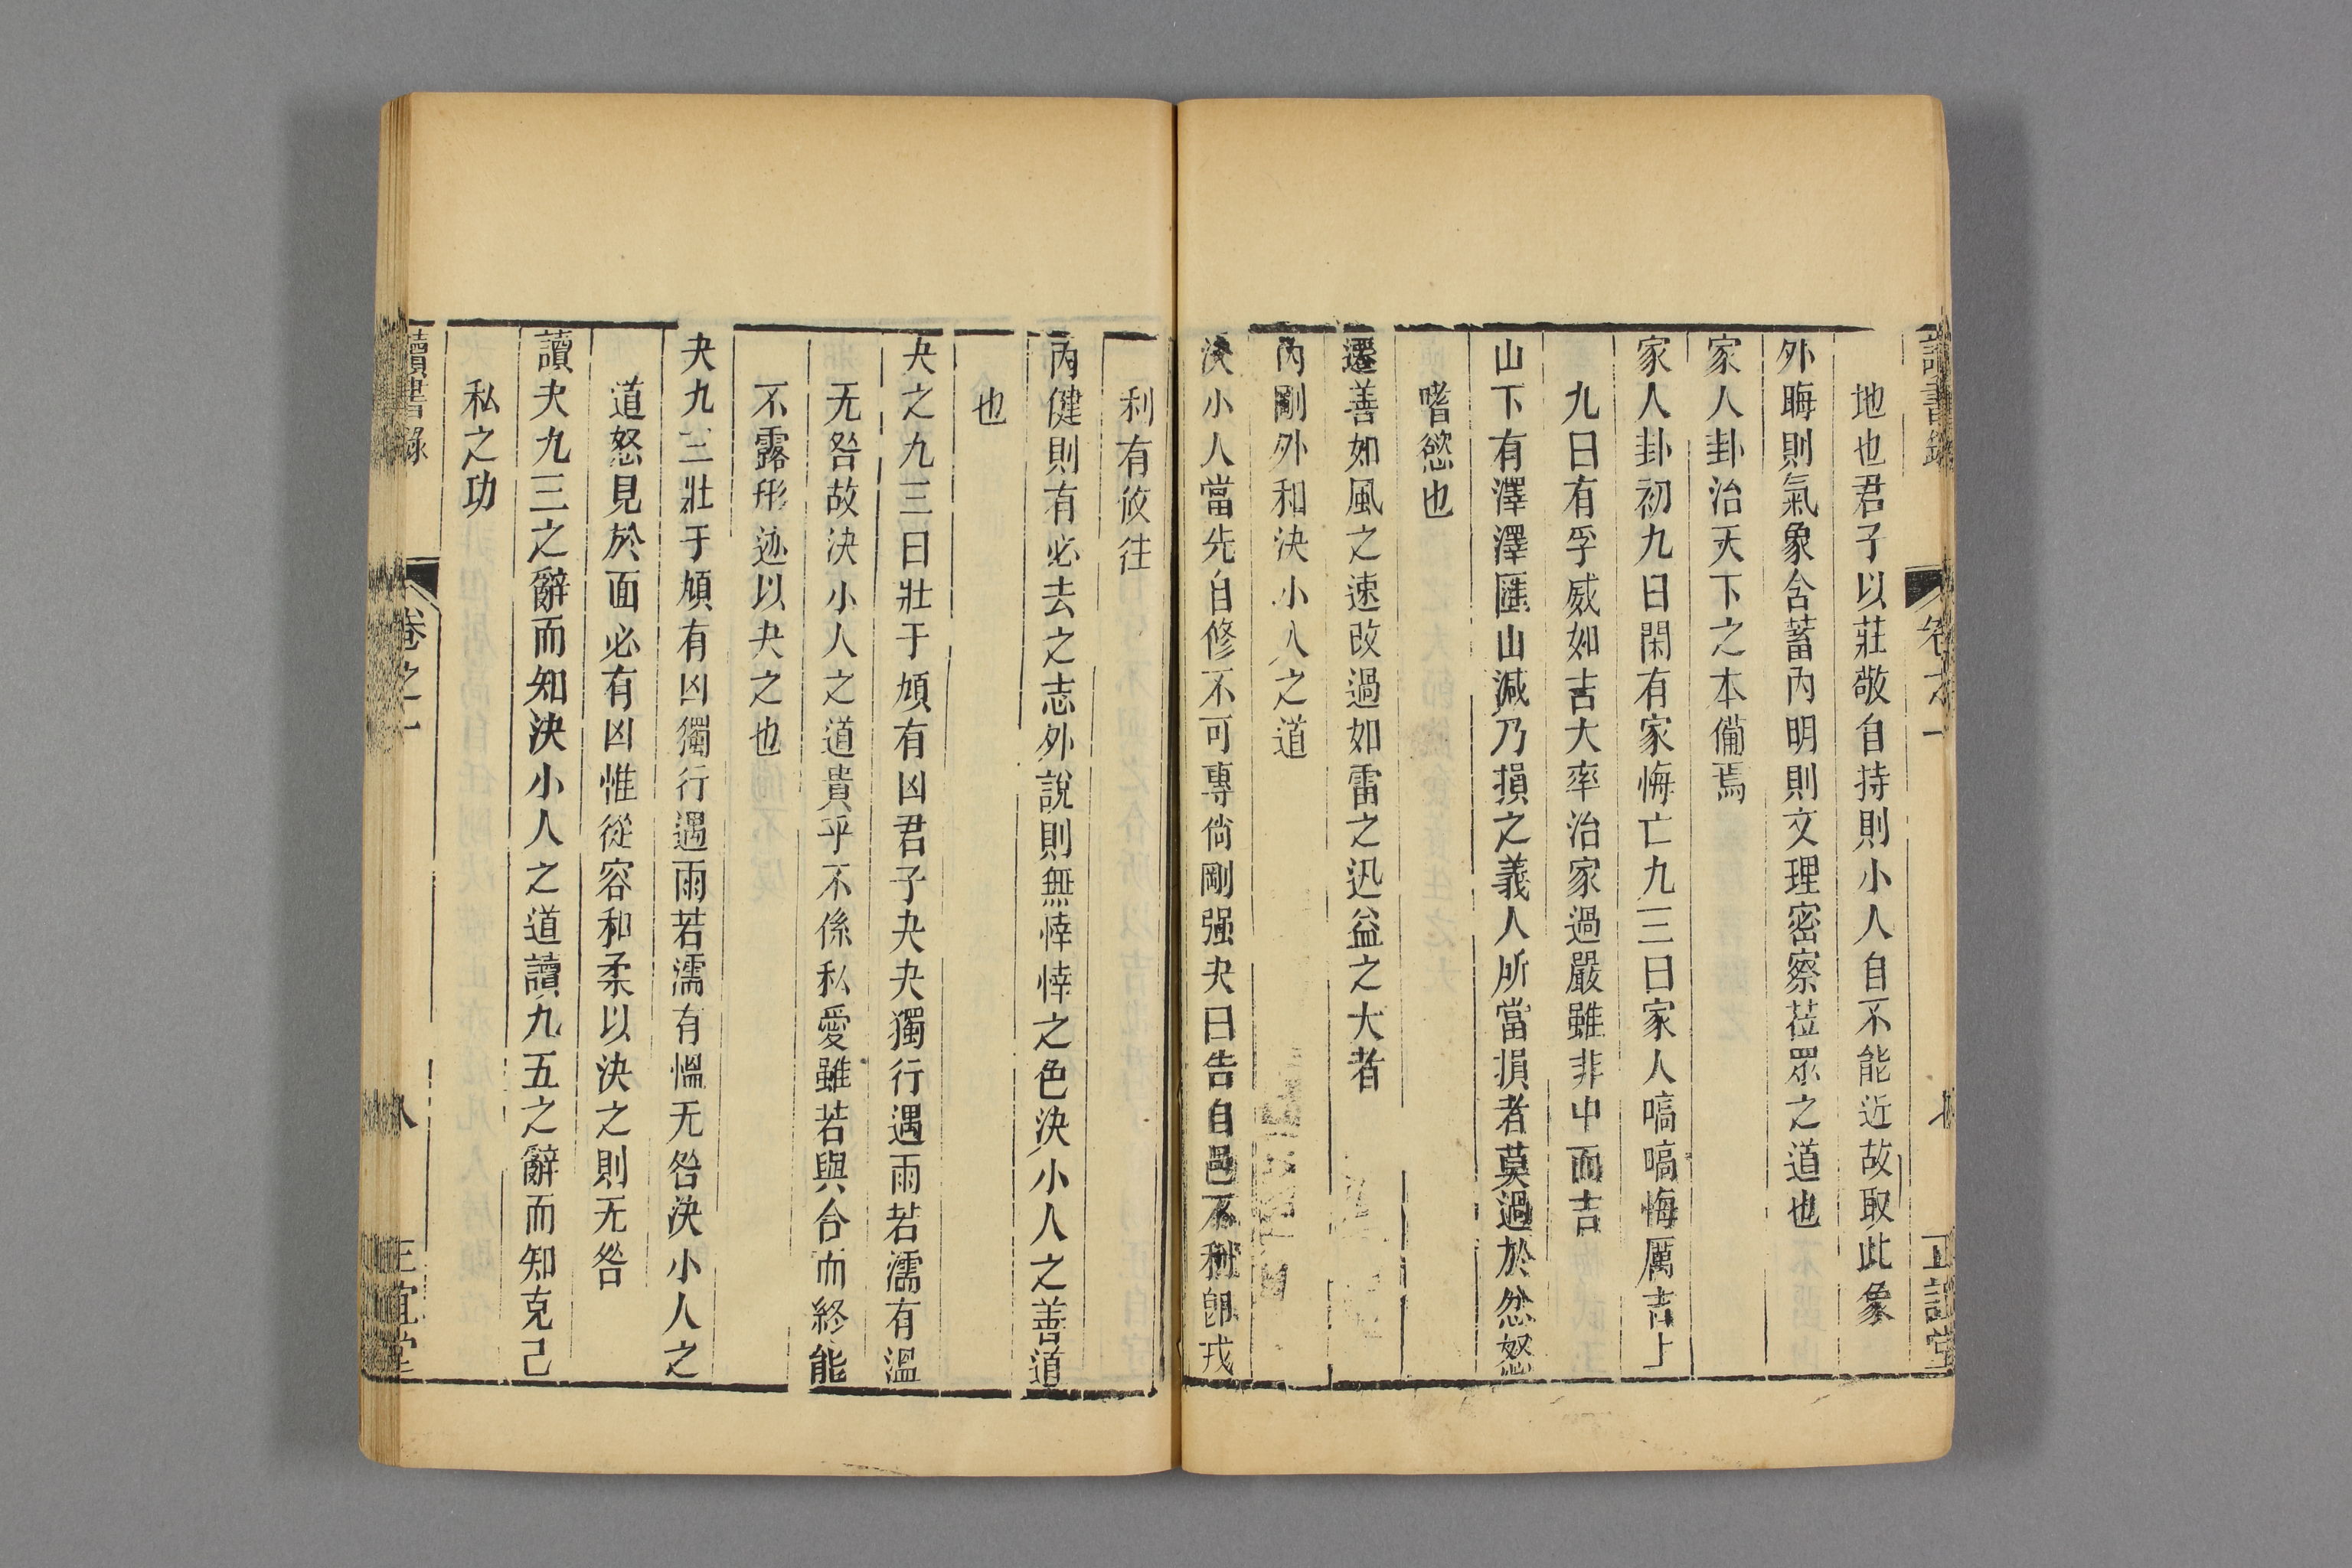 讀書錄 卷之一 正誼堂
地也君子以莊敬自持則小人自不能近故取此象
外晦則氣象含蓄內明則文理密察莅眾之道也
家人卦治天下之本備焉
家人卦初九曰閑有家悔亡九三曰家人嗃嗃悔厲吉上
九曰有孚威如吉大率治家過嚴雖非中而吉
山下有澤澤匯山減乃損之義人所當損者莫過於忿怒
嗜慾也
遷善如風之速改過如雷之迅益之大者
內剛外和決小人之道
決小人當先自修不可專尙剛强夬曰告自邑不利卽戎
利有攸往
內健則有必去之志外說則無悻悻之色決小人之善道
也
夬之九三曰壯于頄有凶君子夬夬獨行遇雨若濡有溫
无咎故決小人之道貴乎不係私愛雖若與合而終能
不露形迹以夬之也
夬九三壯于頄有凶獨行遇雨若濡有慍无咎決小人之
道怒見於面必有凶惟從容和柔以決之則无咎
讀夬九三之辭而知決小人之道讀九五之辭而知克己
私之功
讀書錄 卷之一 八 正誼堂